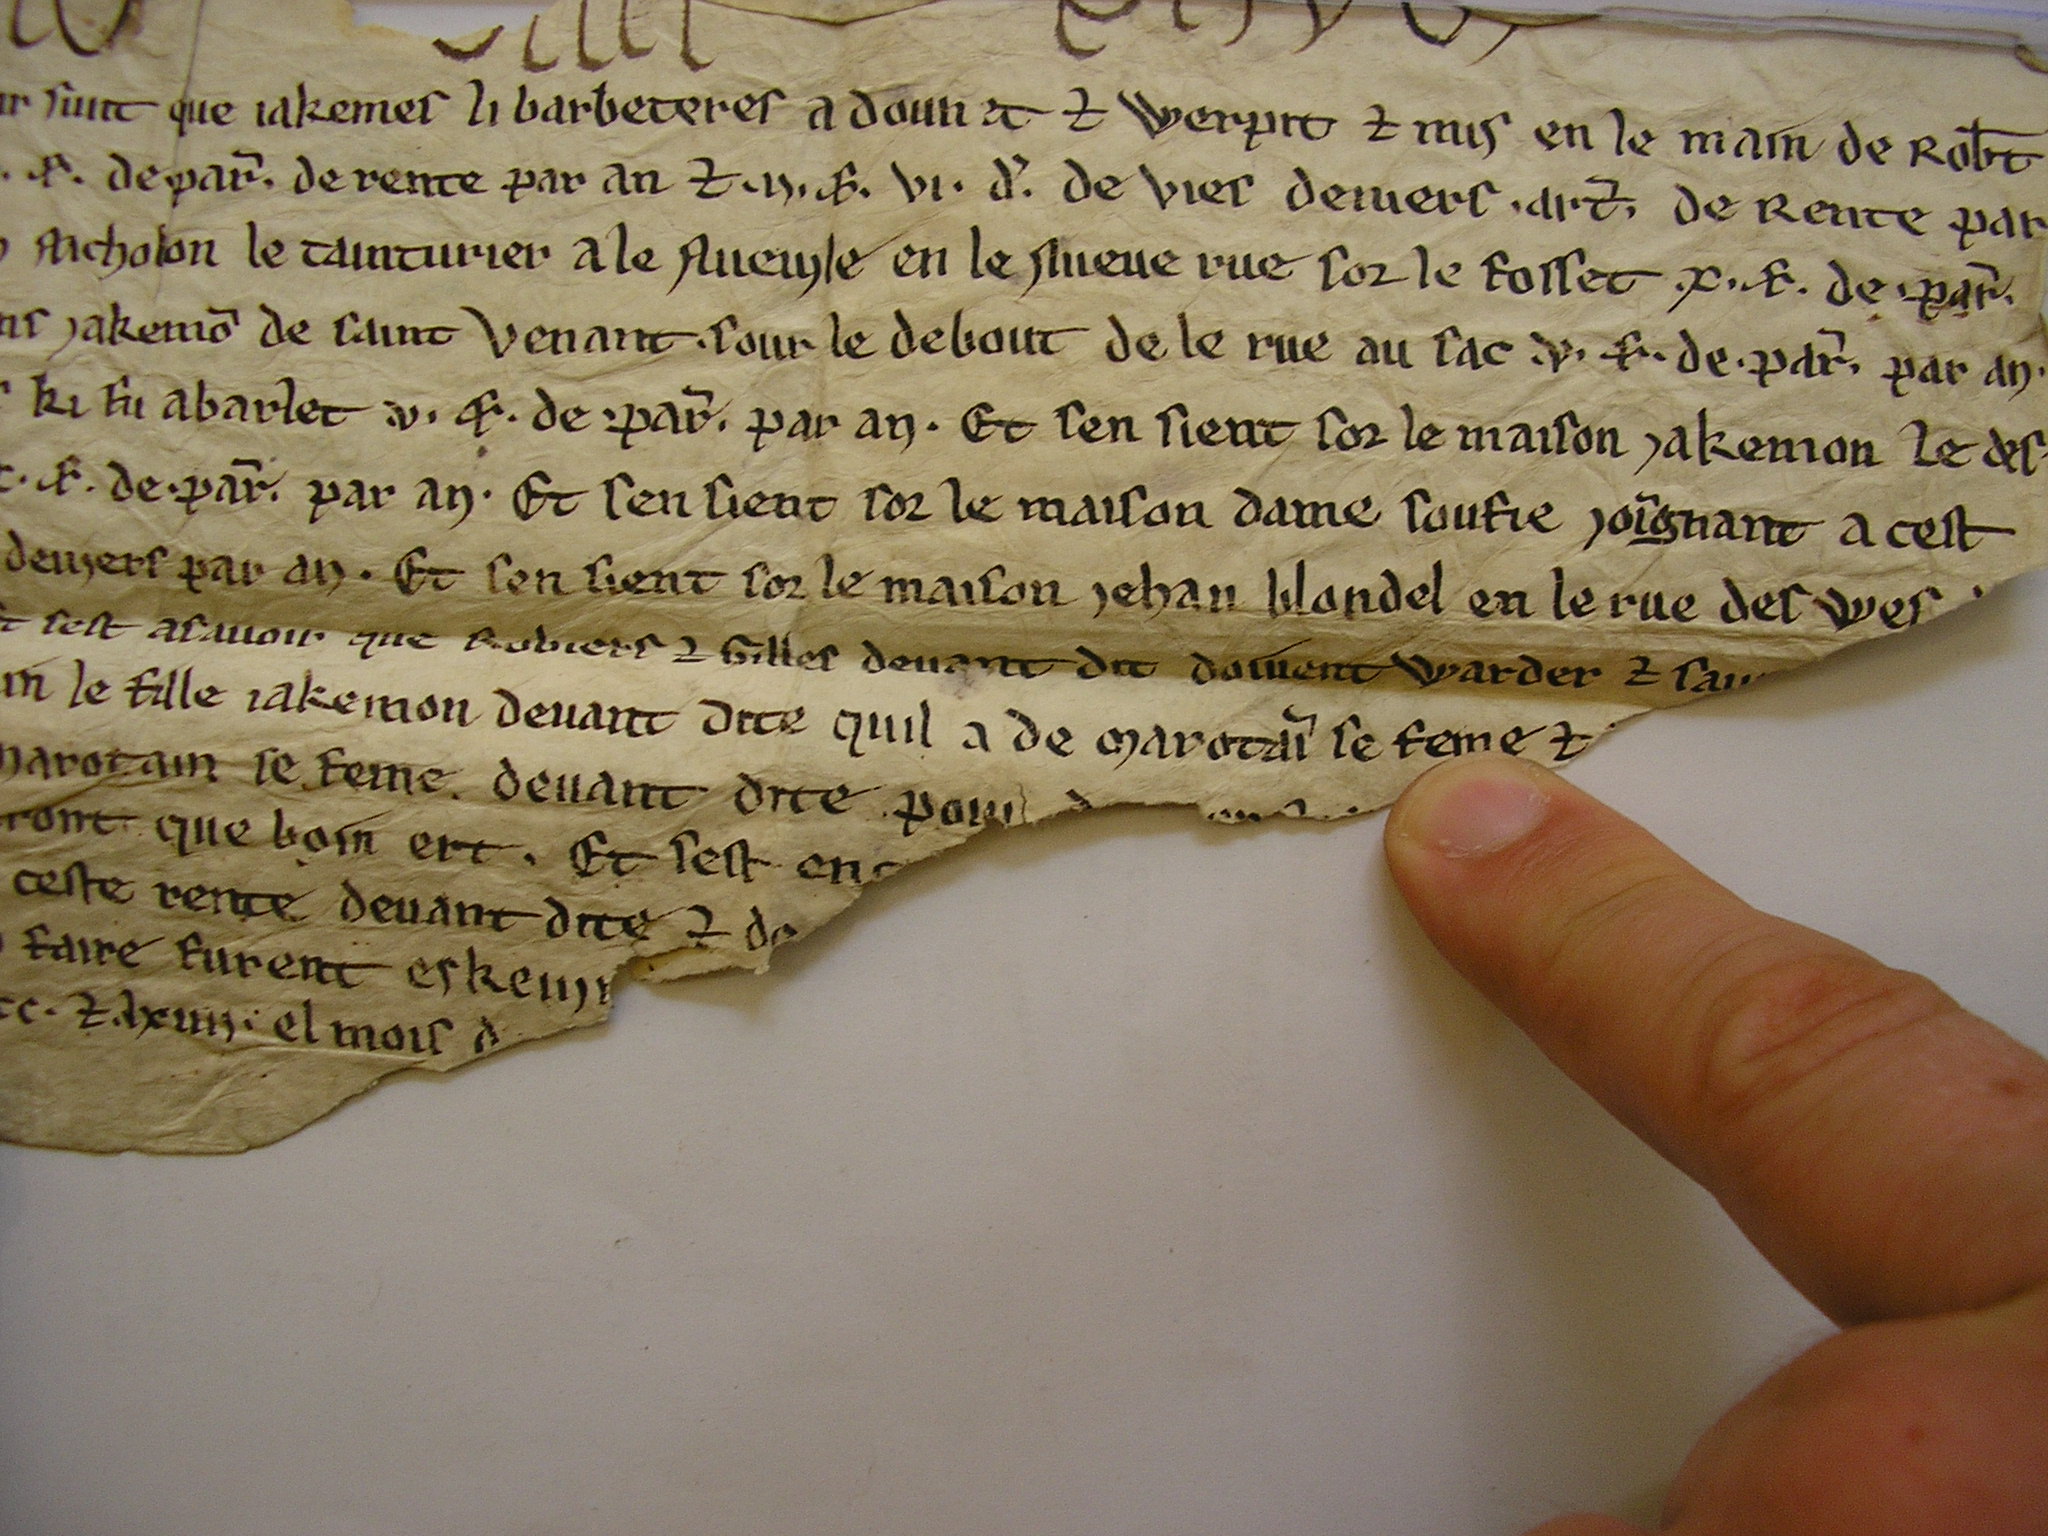 sunt que iakemes li barbeteres a dounet ⁊ Werpit ⁊ mis en le main de Robt̄
.s̄. de par̄. de rente par an ⁊ .ij. s̄. vi. d̄. de vies deniers .art̄. de Rente par
Nicholon le tainturier a le Nueuile en le Nueue rue sor le fosset .x. s̄. de .par̄.
jakemō de saint Venant .sour le debout de le rue au sac .v. s̄. de .par̄. par an.
ki fu abarlet .v. s̄. de .par̄. par an. Et sen sient sor le maison jakemon le des
s̄. de .par̄. par an. Et sen sient sor le maison dame soufie joīgnant a cest
deniers par an. Et sen sient sor le maison jehan blondel en le rue des Wes
sest asauoir que Robiers ⁊ Gilles deuant dit doiuent Warder ⁊ sau
le fille iakemon deuant dite quil a de Marotaī se feme ⁊
Marotain se feme. deuant dite pour
ront que boin ert. Et sest en
ceste rente deuant dite ⁊ de
faire furent eskeuin
cc. ⁊ .lxiiij. el mois d